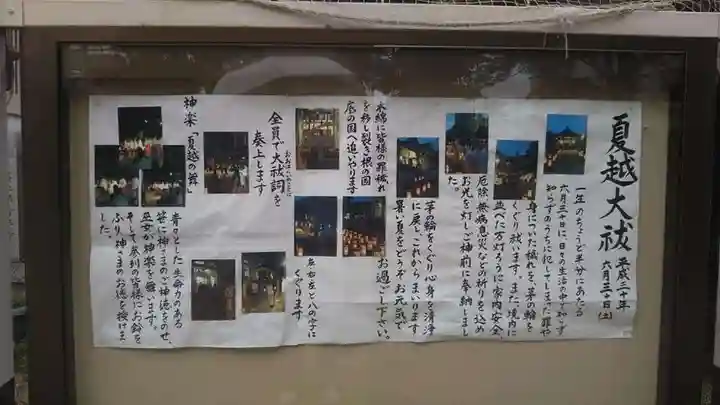 夏越大祓
平成三十年
六月三十日(土)
一年のちょうど半分にあたる
六月三十日に、日々の生活の中で知らず
知らずのうちに犯してしまった罪や
身についた穢れを、茅の輪を
くぐり祓います。また、境内に
並べた万灯ろうに家内安全、
厄除、無病息災などの祈りを込め
お光を灯しご神前に奉納しまし
た。
茅の輪をくぐり心身を清浄
に戻し、これからまいります
暑い夏をどうぞお元気で
お過ごし下さい。
木綿に皆様の罪穢れ
を移し裂き根の国
底の国へ追いやります
左右左と八の字に
くぐります
全員で大祓詞を
おおはらへのことば
奏上します
神楽「夏越の舞」
青々とした生命力のある
笹に神さまのご神徳をのせ、
巫女が神楽を舞います。
そして参列の皆様にお鈴を
ふり神さまのお徳を授けま
した。